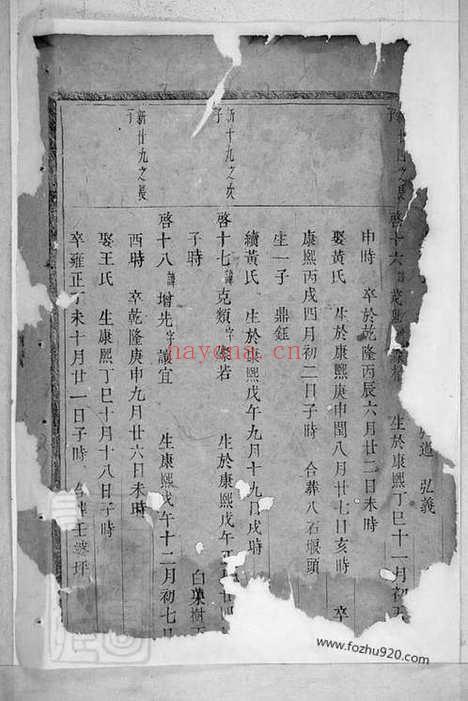 弘義
之長
啓十六 生於康熙丁巳十一月初
申時 卒於乾隆丙辰六月廿二日未時
娶黃氏 生於康熙庚申閏八月廿七日亥時 卒
康熙丙戌四月初二日子時 合葬八石堰頭
生一子 鼎鈺
續黃氏 生於康熙戊午九月十九日戌時
新十九之次
子
啓十七 諱克類字 若 生於康熙戊午
子時 白菓樹
新廿九之長
子
啓十八 諱增先字 宜 生康熙戊午十二月初七日
酉時 卒乾隆庚申九月廿六日未時
娶王氏 生康熙丁巳十月十八日子時
卒雍正丁未十月廿一日子時 王 坪
hayona.cn
www.fozhu920.com